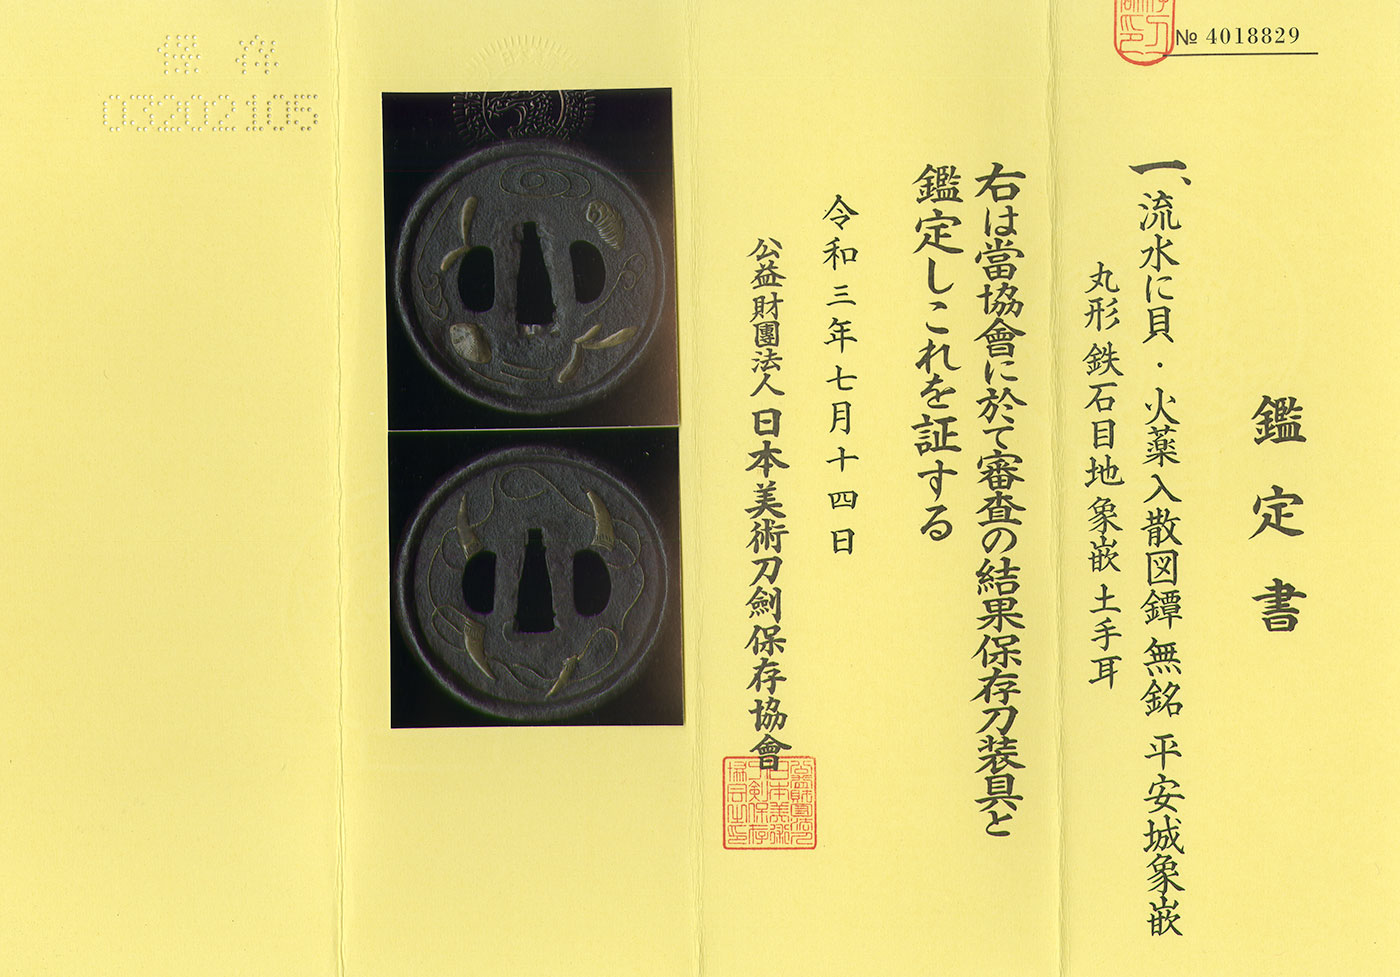 № 4018829
鑑定書
一、流水に貝・火薬入散図鐔 無銘 平安城象嵌
丸形 鉄石目地象嵌 土手耳
右は當協會に於て審査の結果保存刀装具と
鑑定しこれを証する
令和三年七月十四日
公益財團法人 日本美術刀劍保存協會
保存
03202105